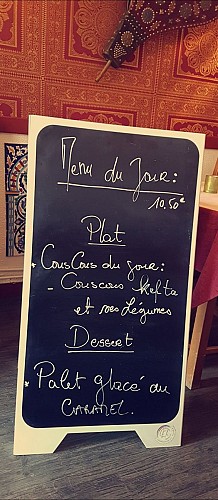 Menu du Jour:
10,50€
Plat
* CousCous du jour:
- Couscous Kefta
et ses légumes
Dessert
* Palet glacé au
CARAMEL.